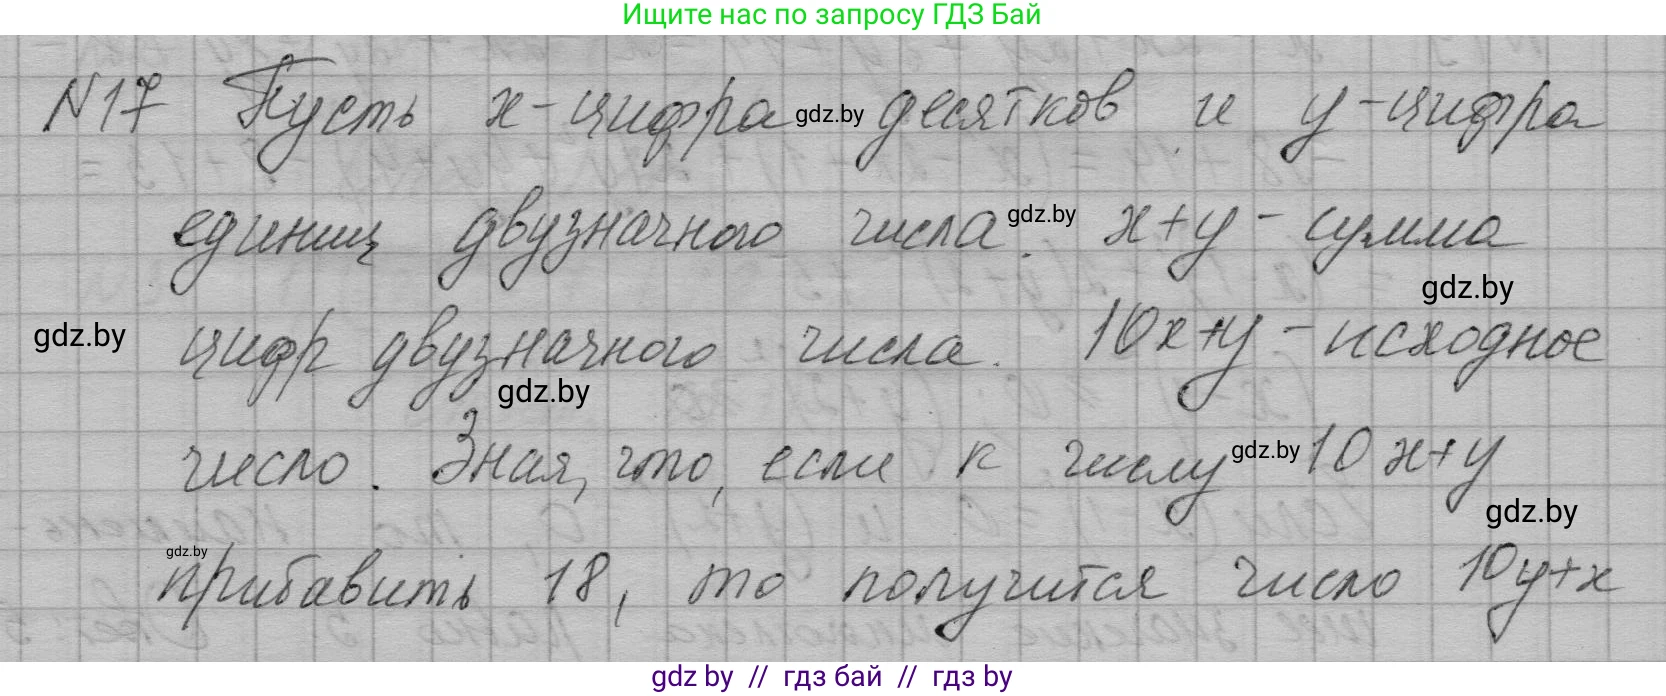 Ищите нас по запросу ГДЗ Бай
N17 Пусть x-цифра gdz.by десятков и y-цифра
единиц двузначного числа. gdz.by x+y - сумма
gdz.by
gdz.by цифр двузначного числа. 10x+y - исходное
gdz.by
число. Зная, что, если к числу gdz.by 10x+y
gdz.by
gdz.by
прибавить 18, то получится число 10y+x
gdz.by // гдз бай // гдз by